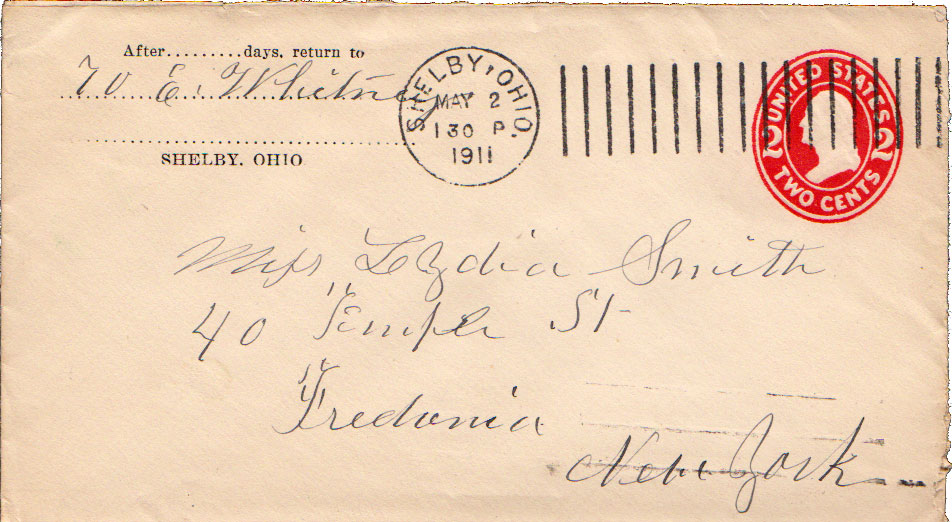 After.........days, return to
W E. Whitney
SHELBY, OHIO
SHELBY, OHIO.
MAY 2
130 P.
1911
UNITED STATES
2 2
TWO CENTS
Miss Lydia Smith
40 Temple St
Fredonia
New York